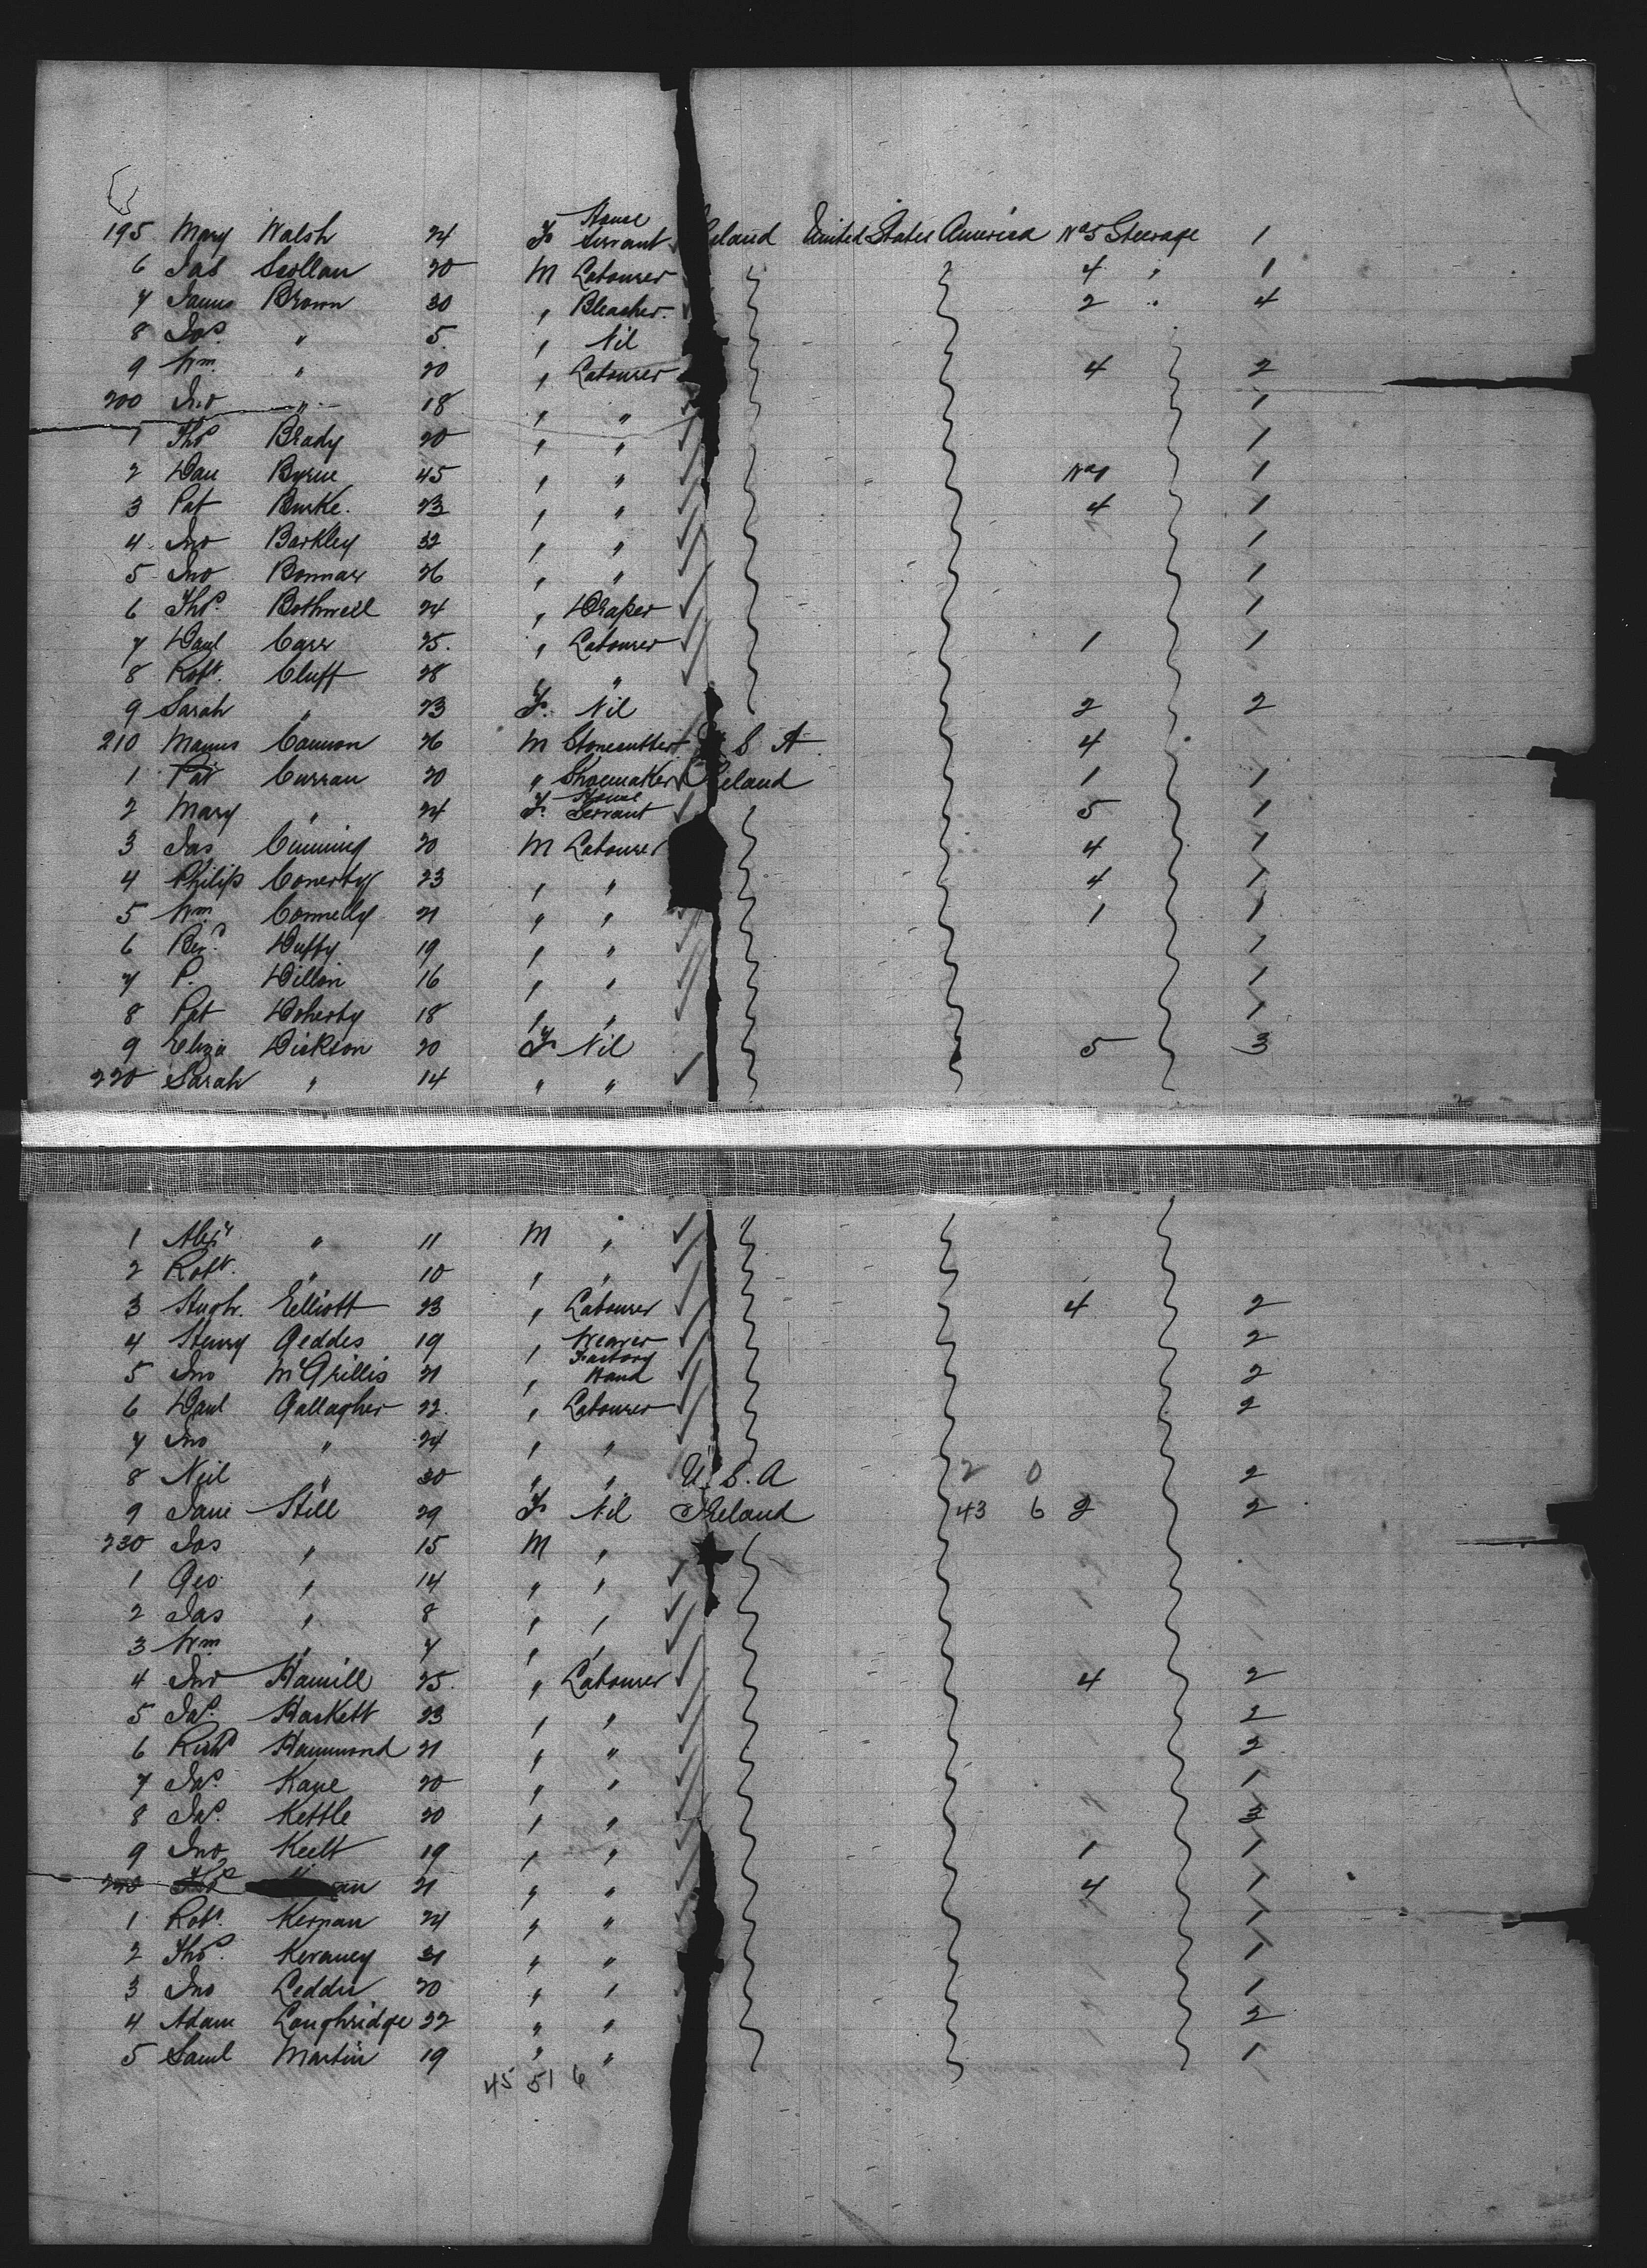 195 Mary Walsh 24 F House Servant Ireland United States America No 5 Steerage 1
6 Jas Scollan 20 M Labourer 4 " 1
7 James Brown 30 " Bleacher. 2 " 4
8 Jos. " 5. " Nil
9 Wm. " 20 " Labourer 4 2
200 Jno " 18 " " 1
1 Thos Brady 20 " " 1
2 Dan Byrne 45 " " No 1 1
3 Pat Burke. 23 " " 4 1
4 Jno Barkley 32 " " 1
5 Jno Bonnar 26 " " 1
6 Thos. Bothwell 24 " Draper 1
7 Danl Carr 25. " Labourer 1 1
8 Robt. Cluff 28 " "
9 Sarah " 23 F. Nil 2 2
210 Manus Cannon 26 M Stonecutter U S A 4
1 Pat Curran 20 " Shoemaker Ireland 1 1
2 Mary " 24 F. House Servant 5 1
3 Jas Cumming 20 M Labourer 4 1
4 Philip Conerty 23 " " 4 1
5 Wm Connelly 21 " " 1 1
6 Duffy 19 " " 1
7 P. Dillon 16 " " 1
8 Pat Doherty 18 " " 1
9 Eliza Dickson 20 F Nil 5 3
220 Sarah " 14 " "
1 Alexr " 11 M "
2 Robt. " 10 " "
3 Hugh. Elliott 23 " Labourer 4 2
4 Henry Geddes 19 " Weaver 2
5 Jno McGrillis 21 " Factory Hand 2
6 Danl Gallagher 22. " Labourer 2
7 Jno " 24 " "
8 Neil " 30 " " U.S.A 2 0 2
9 Jane Still 29 F Nil Ireland 43 6 2 2
230 Jos " 15 M "
1 Geo " 14 " "
2 Jas " 8 " "
3 Wm " 7 " "
4 Jno Hamill 25. " Labourer 4 2
5 Jas. Haskett 23 " " 2
6 Richd Hammond 21 " " 2
7 Jas. Kane 20 " " 1
8 Jas. Kettle 20 " " 3
9 Jno Keilt 19 " " 1 1
240 Thos 21 " " 4 1
1 Robt. Kernan 24 " " 1
2 Thos. Keraney 31 " " 1
3 Jno Leddie 20 " " 1
4 Adam Loughridge 22 " " 2
5 Saml Martin 19 " " 1
45 51 6